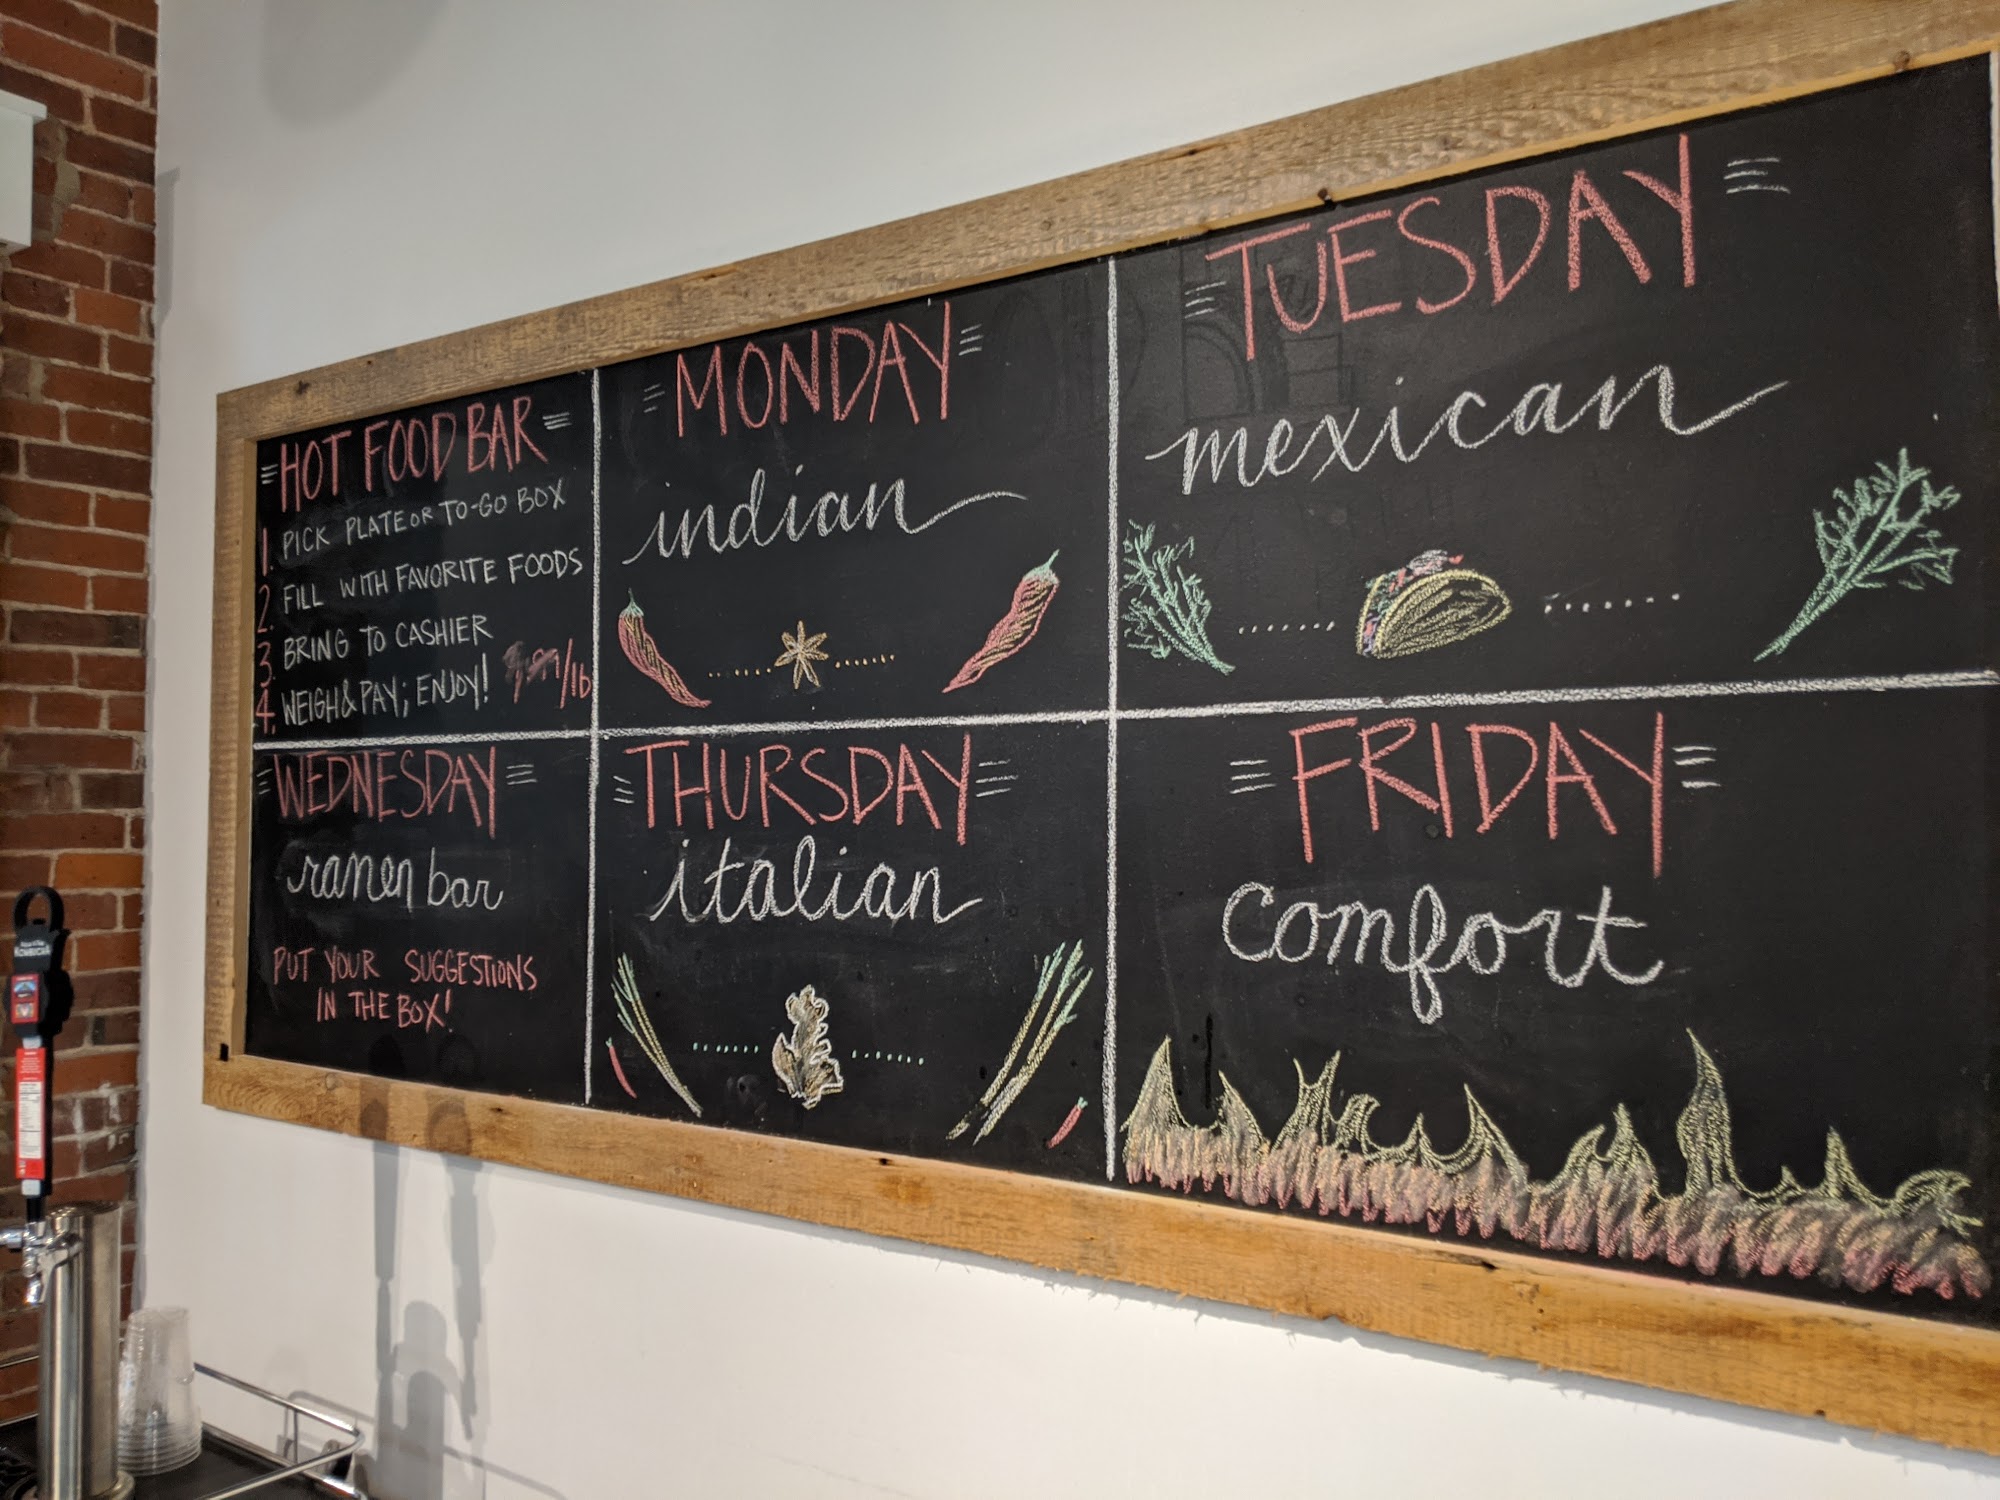 HOT FOOD BAR
1. PICK PLATE OR TO-GO BOX
2. FILL WITH FAVORITE FOODS
3. BRING TO CASHIER
4. WEIGH & PAY; ENJOY! /lb
MONDAY
indian
TUESDAY
mexican
WEDNESDAY
ramen bar
PUT YOUR SUGGESTIONS
IN THE BOX!
THURSDAY
italian
FRIDAY
comfort
KOMBUCHA